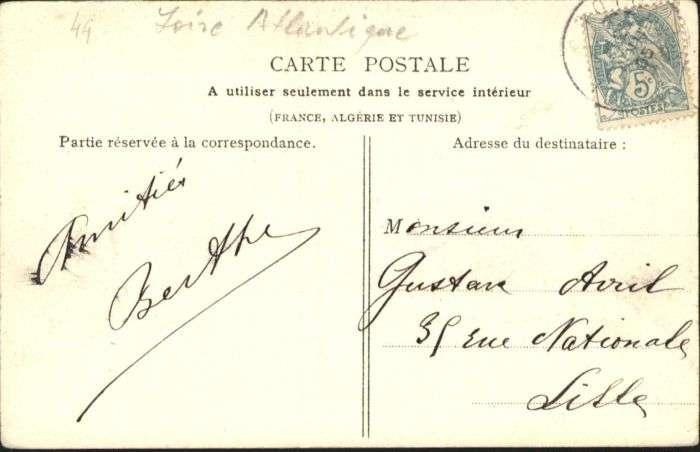 44 Loire Atlantique
CARTE POSTALE
A utiliser seulement dans le service intérieur
(FRANCE, ALGÉRIE ET TUNISIE)
Partie réservée à la correspondance.
Amitiés
Berthe
Adresse du destinataire :
Monsieur
Gustave Avril
35 rue Nationale
Lille
5c
POSTES